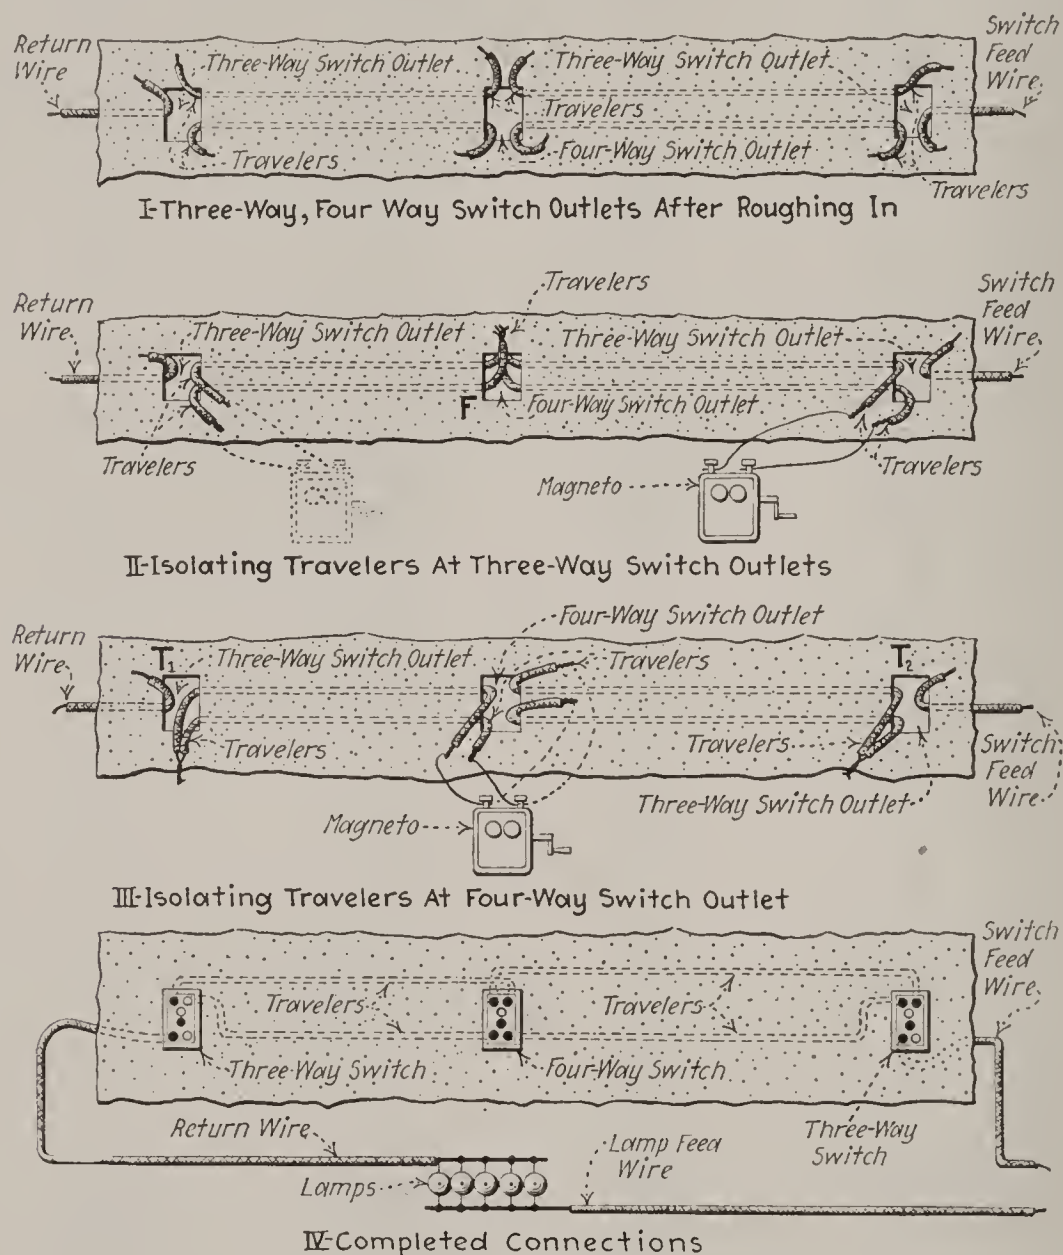 Return
Wire
Three-Way Switch Outlet
Three-Way Switch Outlet
Switch
Feed
Wire
Travelers
Travelers
Four-Way Switch Outlet
Travelers
I-Three-Way, Four Way Switch Outlets After Roughing In
Travelers
Return
Wire
Three-Way Switch Outlet
Three-Way Switch Outlet
Switch
Feed
Wire
F
Four-Way Switch Outlet
Travelers
Travelers
Magneto
II-Isolating Travelers At Three-Way Switch Outlets
Four-Way Switch Outlet
Return
Wire
T1
Three-Way Switch Outlet
Travelers
T2
Travelers
Travelers
Switch
Feed
Wire
Three-Way Switch Outlet
Magneto
III-Isolating Travelers At Four-Way Switch Outlet
Switch
Feed
Wire
Travelers
Travelers
Three-Way Switch
Four-Way Switch
Three-Way
Switch
Return Wire
Lamp Feed
Wire
Lamps
IV-Completed Connections